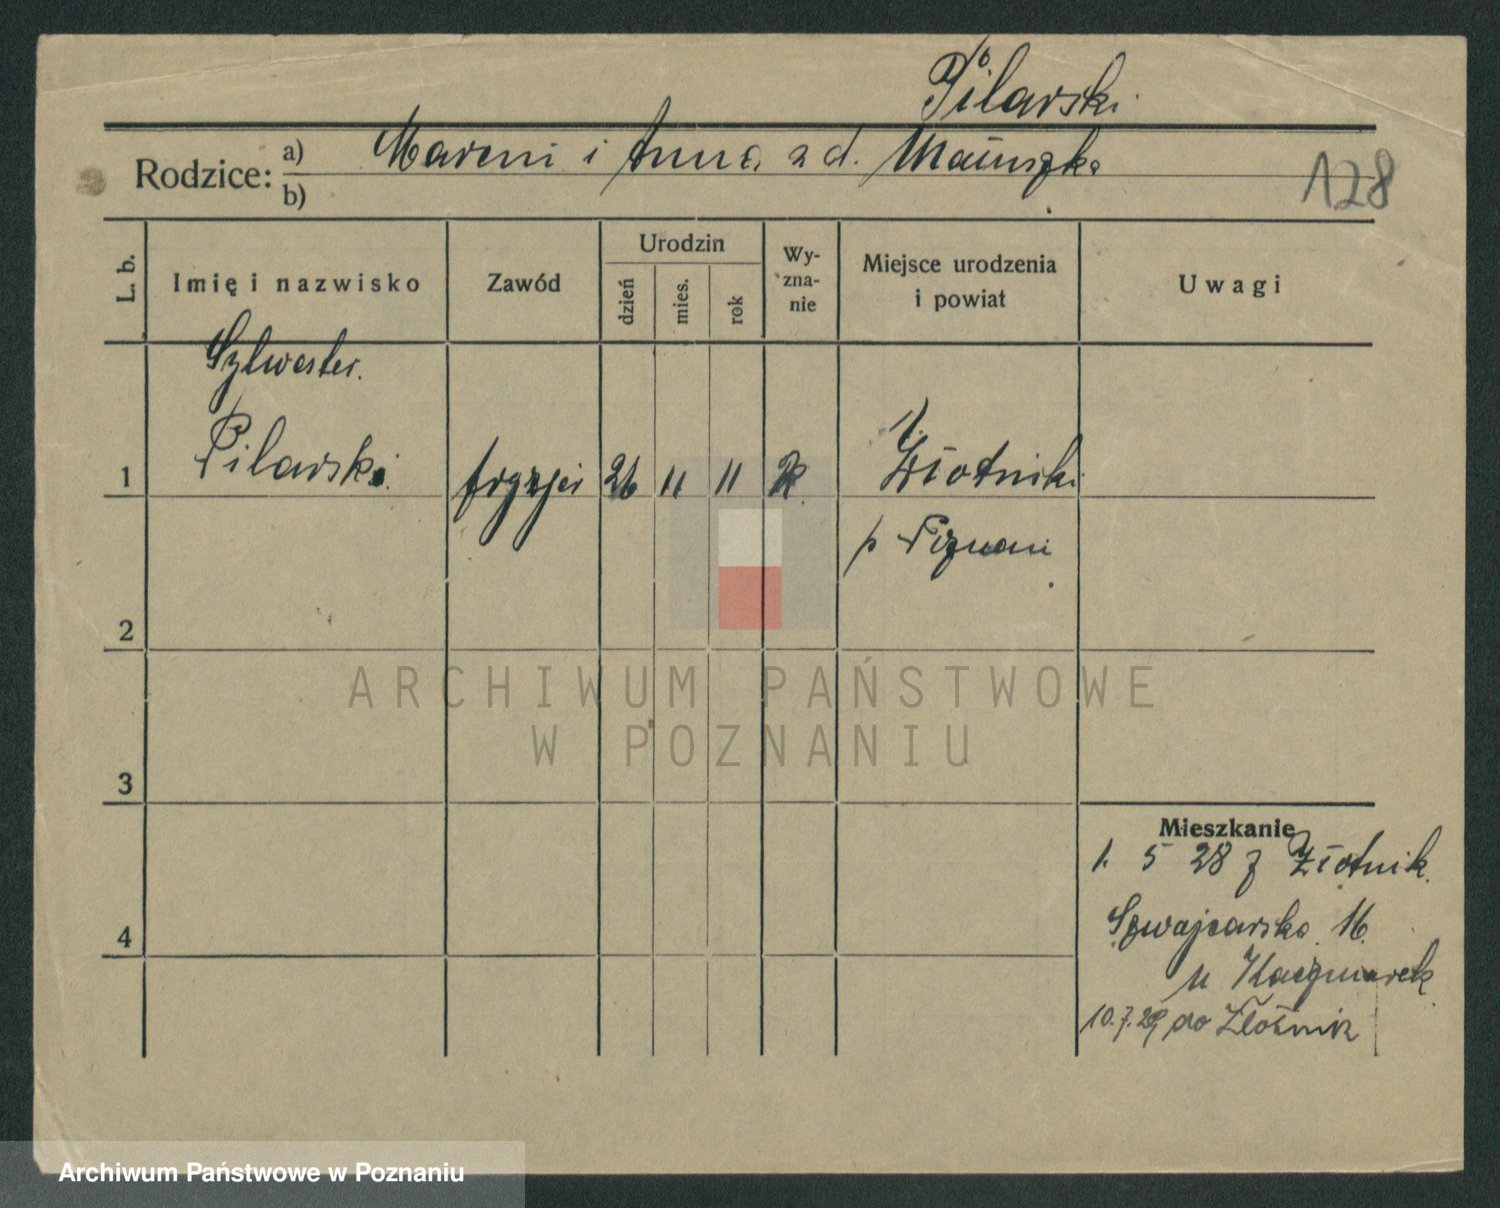 Pilarski
Rodzice: a) Marcin i Anna z d. Matuszka
b)
128
L. b.
Imię i nazwisko
Zawód
Urodzin
dzień
mies.
rok
Wy-
zna-
nie
Miejsce urodzenia
i powiat
Uwagi
Sylwester
1 Pilarski fryzjer 26 11 11 k. Złotniki
p Poznań
2
3
4
Mieszkanie
1. 5 28 z Złotnik.
Szwajcarska 16.
u Kaczmarek
10.7.29 do Złotnik
ARCHIWUM PAŃSTWOWE
W POZNANIU
Archiwum Państwowe w Poznaniu